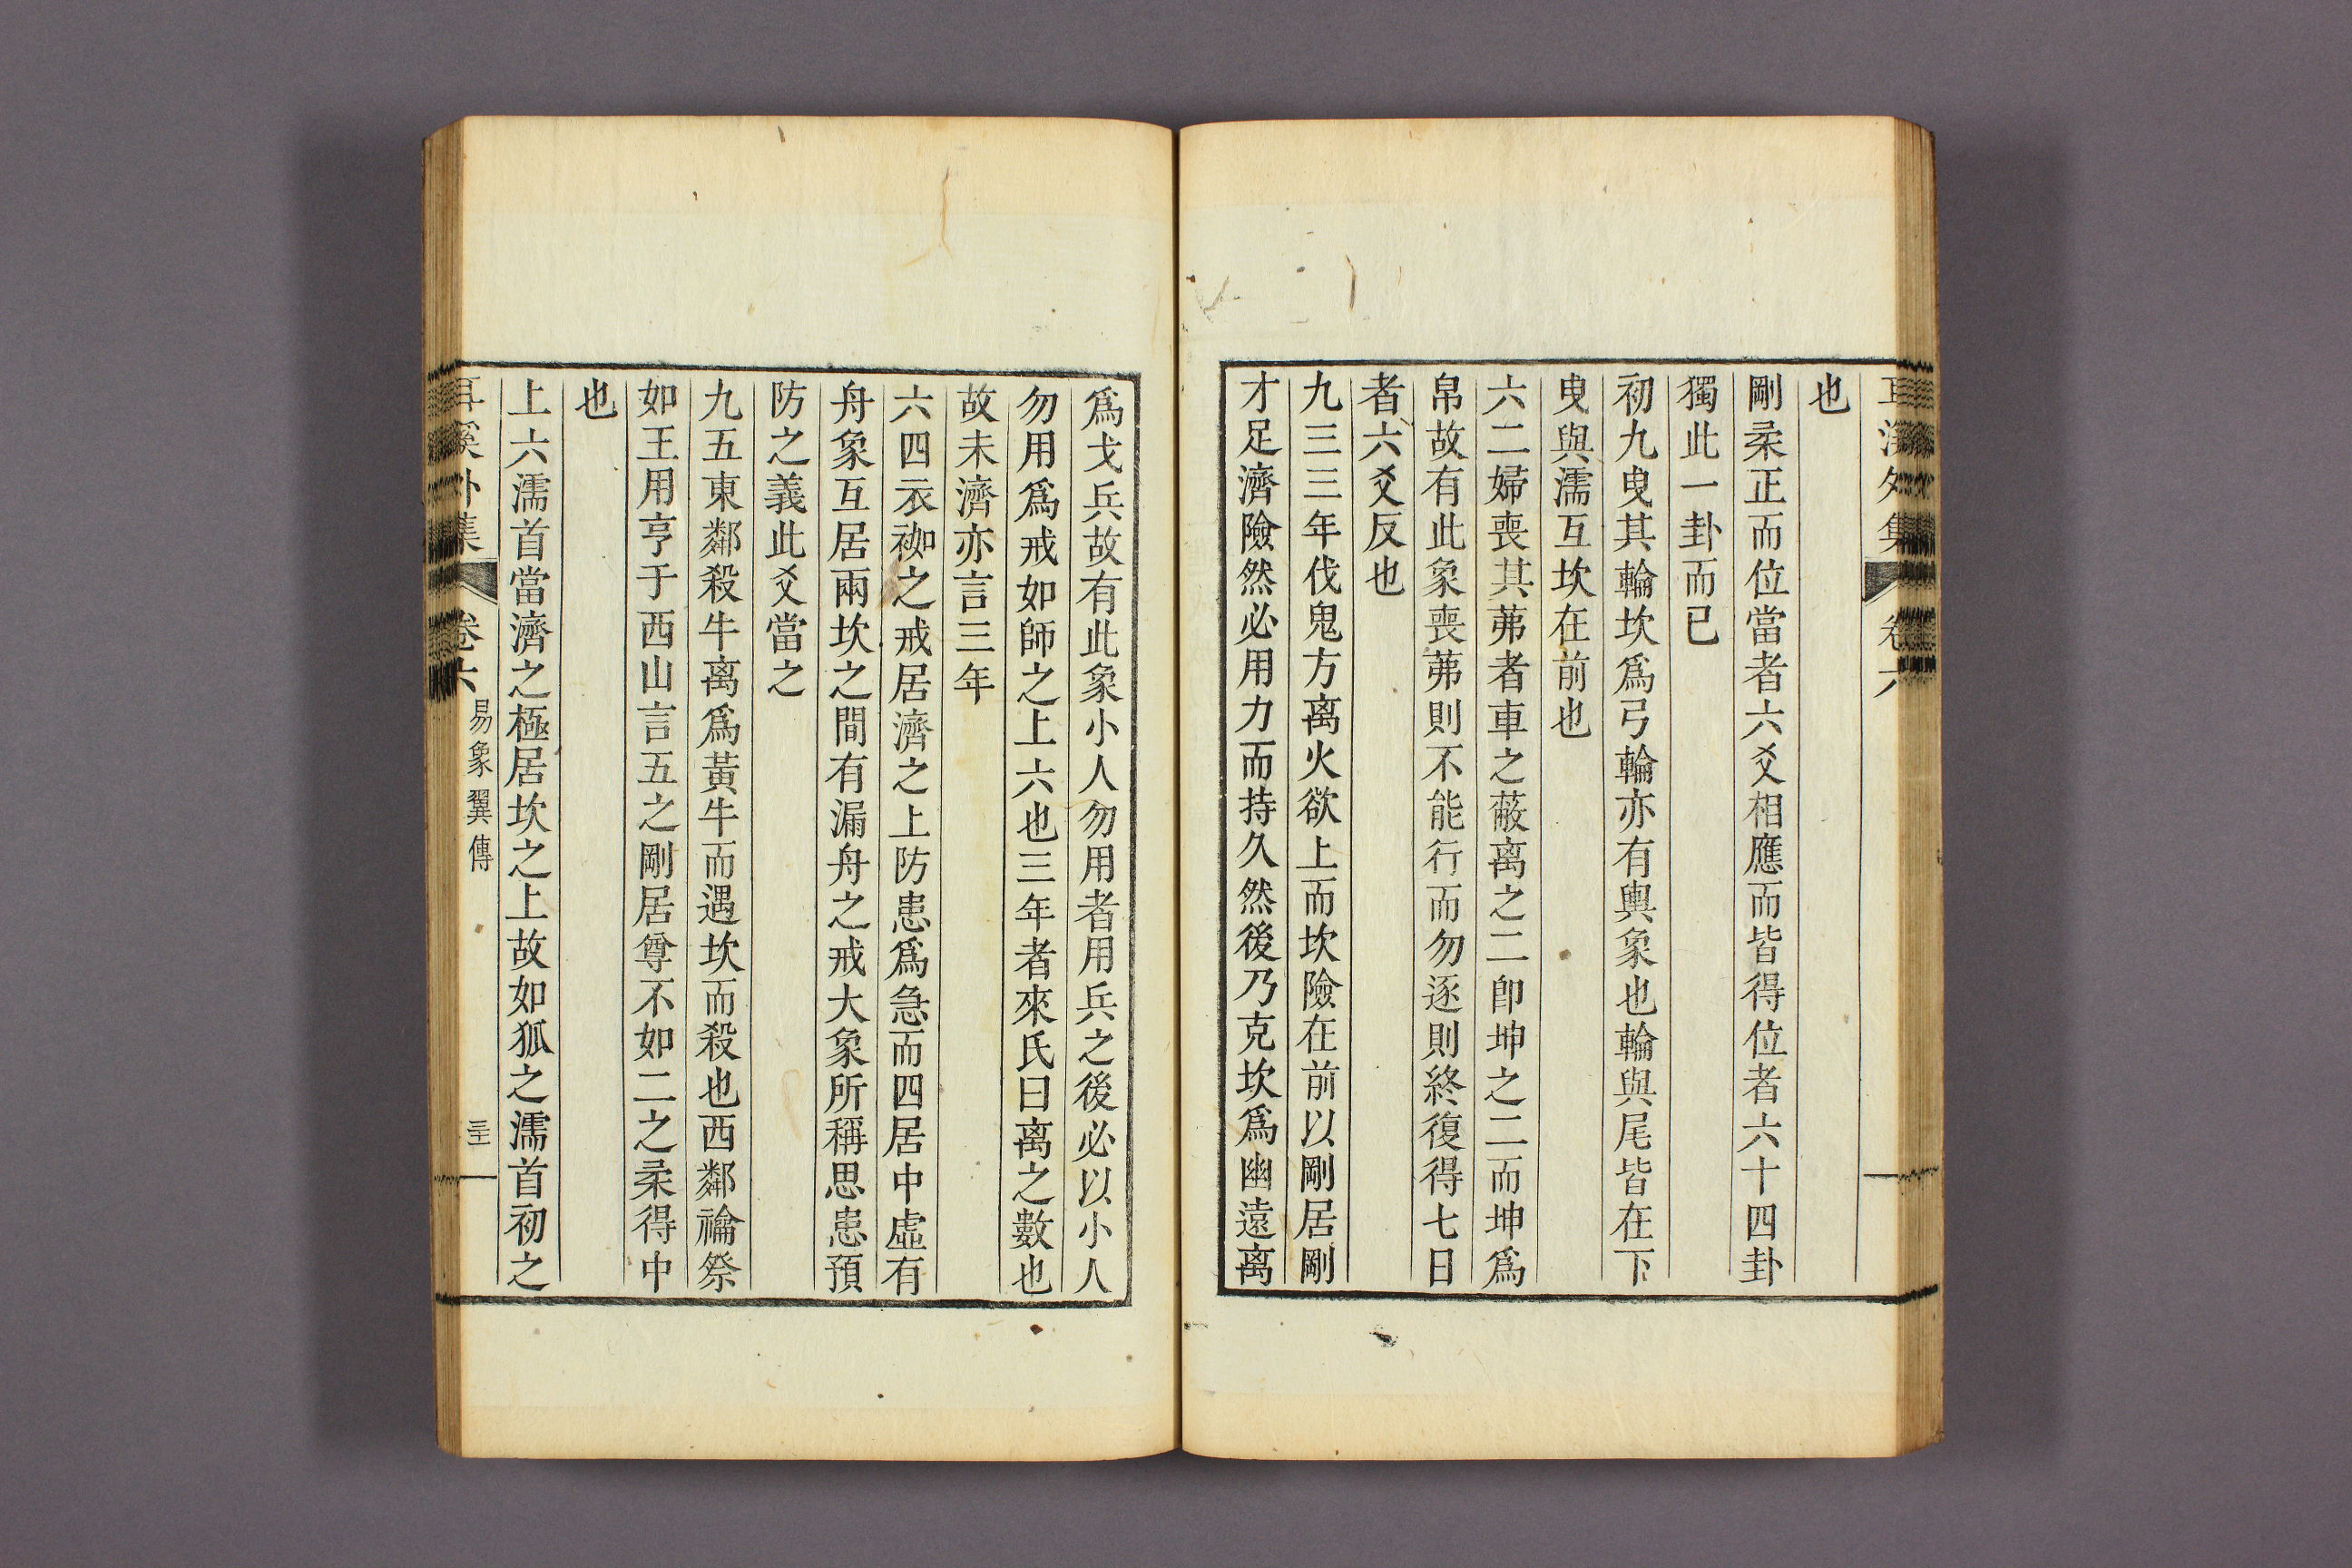 耳溪外集 卷六
也
剛柔正而位當者六爻相應而皆得位者六十四卦
獨此一卦而已
初九曳其輪坎爲弓輪亦有輿象也輪與尾皆在下
曳與濡互坎在前也
六二婦喪其茀者車之蔽离之二卽坤之二而坤爲
帛故有此象喪茀則不能行而勿逐則終復得七日
者六爻反也
九三三年伐鬼方离火欲上而坎險在前以剛居剛
才足濟險然必用力而持久然後乃克坎爲幽遠离
爲戈兵故有此象小人勿用者用兵之後必以小人
勿用爲戒如師之上六也三年者來氏曰离之數也
故未濟亦言三年
六四衣袽之戒居濟之上防患爲急而四居中虛有
舟象互居兩坎之間有漏舟之戒大象所稱思患預
防之義此爻當之
九五東鄰殺牛离爲黃牛而遇坎而殺也西鄰禴祭
如王用亨于西山言五之剛居尊不如二之柔得中
也
上六濡首當濟之極居坎之上故如狐之濡首初之
耳溪外集 卷六 易象翼傳